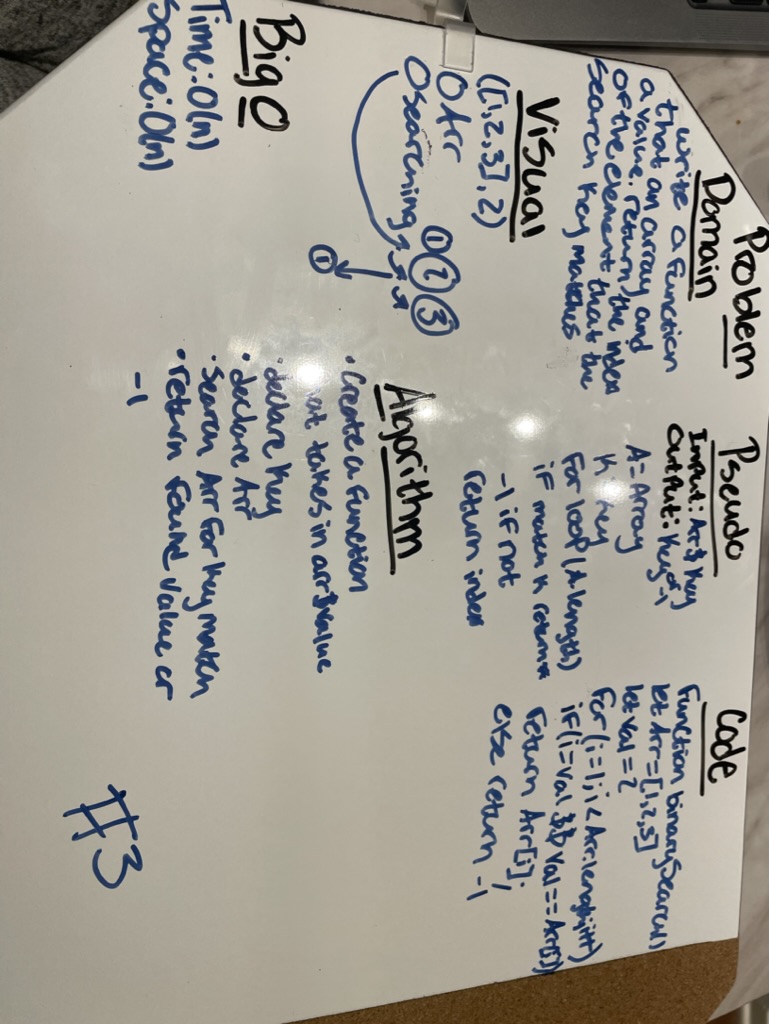 Problem
Domain
write a function
that an array and
a value. return the index
of the element that the
search key matches
Visual
([1,2,3],2)
O Arr
O searching
① ② ③
①
Big O
Time: O(n)
Space: O(n)
Pseudo
Input: Arr & Key
Output: Key or -1
A = Array
K = Key
For loop (A.length)
if match K return
-1 if not
return index
Algorithm
• Create a function
that takes in arr & value
• declare Key
• declare Arr
• Search Arr for Key match
• return found value or
-1
Code
Function binarySearch()
let Arr = [1,2,3]
let val = 2
for (i=1; i<Arr.length; i++)
if (i=val && val==Arr[i])
return Arr[i];
else return -1
#3